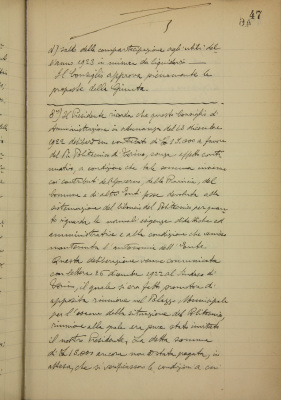 47
d) saldo della compartecipazione agli utili del
Il Consiglio approva pienamente le
proposte della Giunta
8°) Il Presidente ricorda che questo Consiglio di
Amministrazione in adunanza del 28 dicembre
1922 deliberò un contributo di £ 12.000 a favore
del R. Politecnico di Torino, senza effetto conti
nuativo, a condizione che tal somma insieme
coi contributi del Governo, della Provincia, del
Comune e di altri Enti fosse devoluta alla
sistemazione del bilancio del Politecnico per quan
to riguarda le normali esigenze didattiche ed
amministrative e alla condizione che venisse
mantenuta l'autonomia dell'Ente.
Questa deliberazione venne comunicata
con lettera 26 dicembre 1922 al Sindaco di
Torino, il quale si era fatto promotore di
apposita riunione nel Palazzo Municipale
per l'esame della situazione del Politecnico,
riunione alla quale era pure stato invitato
il nostro Presidente. La detta somma
di £ 12.000 ancora non è stata pagata, in
attesa che si verificassero le condizioni a cui